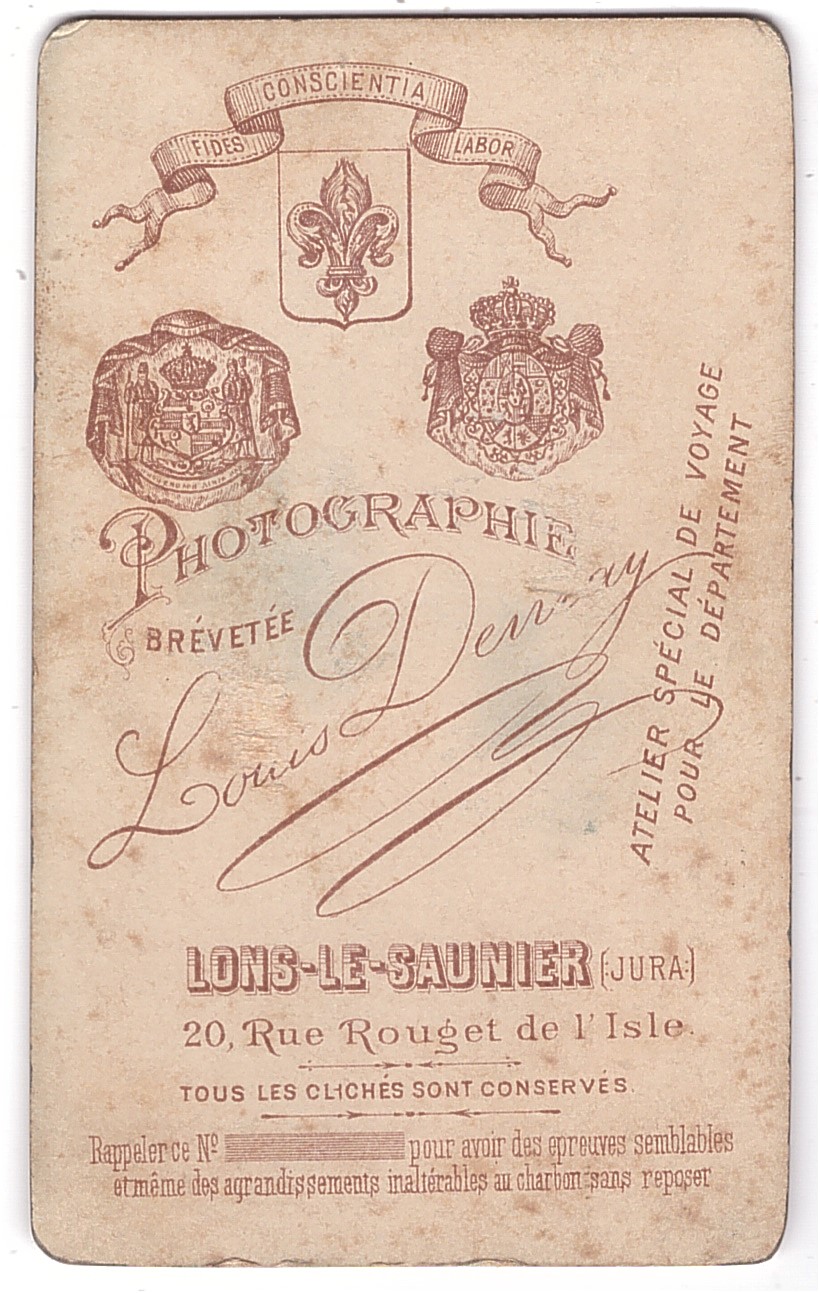 FIDES CONSCIENTIA LABOR
PHOTOGRAPHIE
BRÉVETÉE
Louis
ATELIER SPÉCIAL DE VOYAGE
POUR LE DÉPARTEMENT
LONS-LE-SAUNIER (JURA)
20, Rue Rouget de l'Isle.
TOUS LES CLICHÉS SONT CONSERVÉS.
Rappeler ce Nº pour avoir des epreuves semblables
et même des agrandissements inaltérables au charbon sans reposer